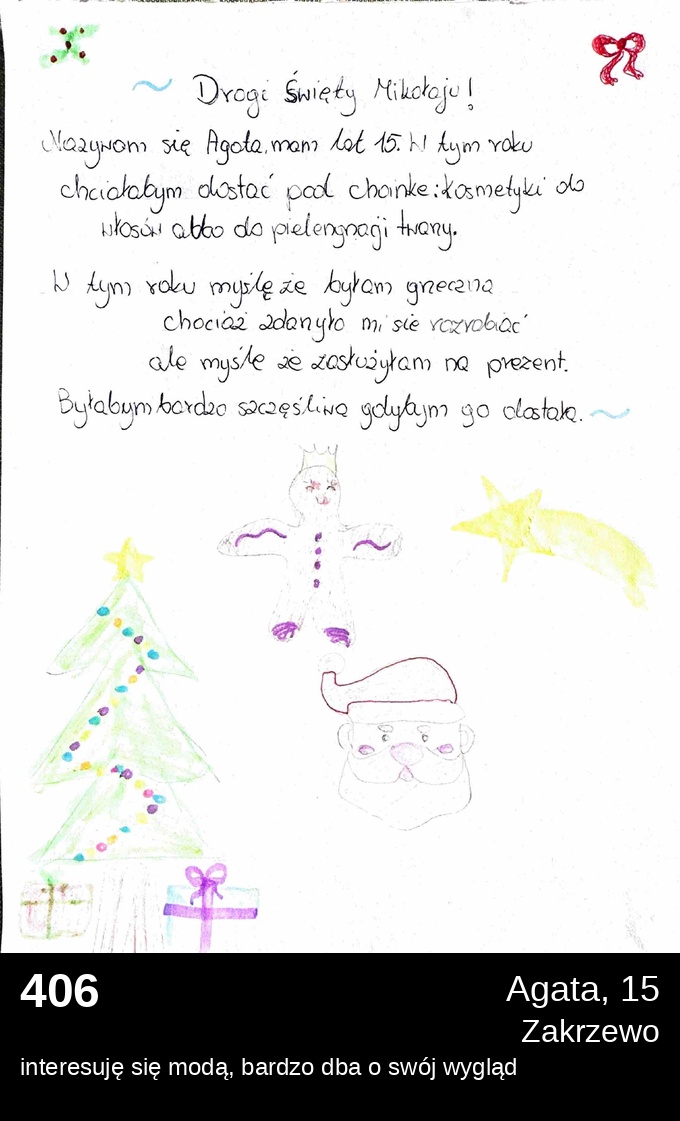 Drogi Święty Mikołaju!
Nazywam się Agata, mam lat 15. W tym roku
chciałabym dostać pod choinke: kosmetyki do
włosów albo do pielengnagi twarzy.
W tym roku myślę że byłam grzeczna
chociaż zdarzyło mi się rozrabiać
ale myśle że zasłużyłam na prezent.
Byłabym bardzo szczęśliwa gdybym go dostała.
406
Agata, 15
Zakrzewo
interesuję się modą, bardzo dba o swój wygląd